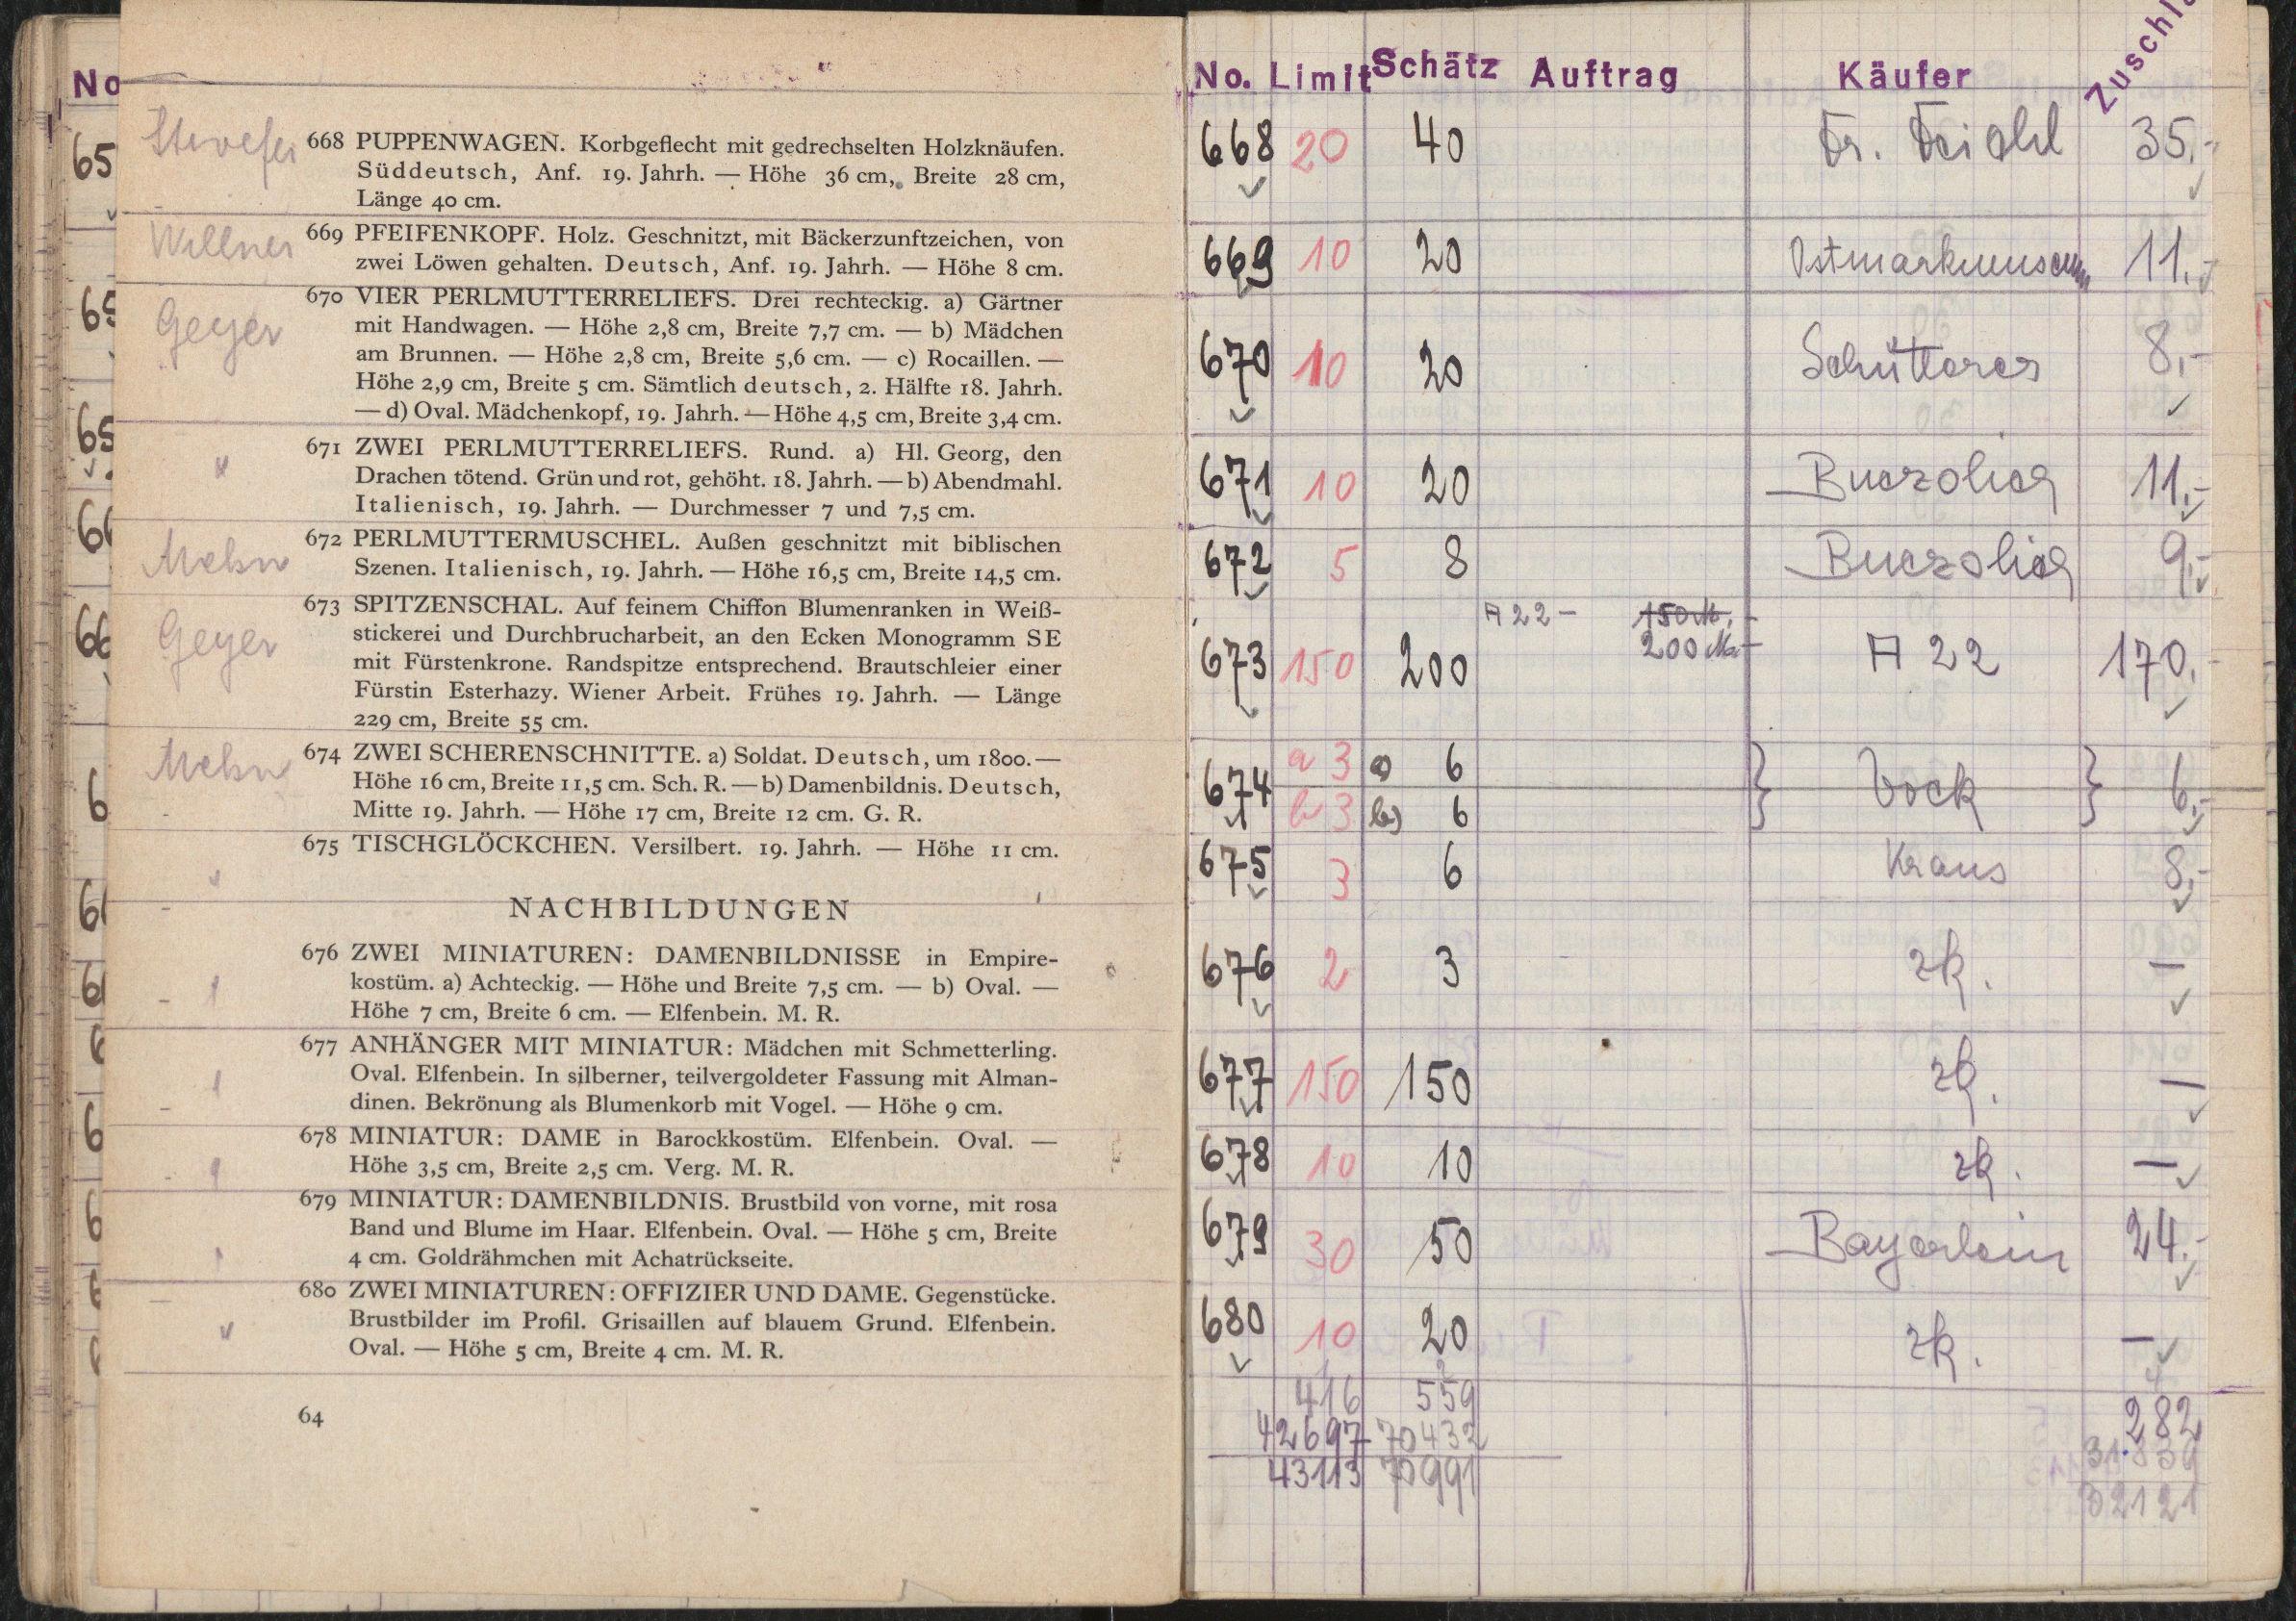 No
Geyer
668 PUPPENWAGEN. Korbgeflecht mit gedrechselten Holzknäufen.
Süddeutsch, Anf. 19. Jahrh. — Höhe 36 cm, Breite 28 cm,
Länge 40 cm.
Willner
669 PFEIFENKOPF. Holz. Geschnitzt, mit Bäckerzunftzeichen, von
zwei Löwen gehalten. Deutsch, Anf. 19. Jahrh. — Höhe 8 cm.
670 VIER PERLMUTTERRELIEFS. Drei rechteckig. a) Gärtner
mit Handwagen. — Höhe 2,8 cm, Breite 7,7 cm. — b) Mädchen
am Brunnen. — Höhe 2,8 cm, Breite 5,6 cm. — c) Rocaillen. —
Höhe 2,9 cm, Breite 5 cm. Sämtlich deutsch, 2. Hälfte 18. Jahrh.
— d) Oval. Mädchenkopf, 19. Jahrh. — Höhe 4,5 cm, Breite 3,4 cm.
671 ZWEI PERLMUTTERRELIEFS. Rund. a) Hl. Georg, den
Drachen tötend. Grün und rot, gehöht. 18. Jahrh. — b) Abendmahl.
Italienisch, 19. Jahrh. — Durchmesser 7 und 7,5 cm.
672 PERLMUTTERMUSCHEL. Außen geschnitzt mit biblischen
Szenen. Italienisch, 19. Jahrh. — Höhe 16,5 cm, Breite 14,5 cm.
Geyer
673 SPITZENSCHAL. Auf feinem Chiffon Blumenranken in Weiß-
stickerei und Durchbrucharbeit, an den Ecken Monogramm SE
mit Fürstenkrone. Randspitze entsprechend. Brautschleier einer
Fürstin Esterhazy. Wiener Arbeit. Frühes 19. Jahrh. — Länge
229 cm, Breite 55 cm.
674 ZWEI SCHERENSCHNITTE. a) Soldat. Deutsch, um 1800. —
Höhe 16 cm, Breite 11,5 cm. Sch. R. — b) Damenbildnis. Deutsch,
Mitte 19. Jahrh. — Höhe 17 cm, Breite 12 cm. G. R.
675 TISCHGLÖCKCHEN. Versilbert. 19. Jahrh. — Höhe 11 cm.
NACHBILDUNGEN
676 ZWEI MINIATUREN: DAMENBILDNISSE in Empire-
kostüm. a) Achteckig. — Höhe und Breite 7,5 cm. — b) Oval. —
Höhe 7 cm, Breite 6 cm. — Elfenbein. M. R.
677 ANHÄNGER MIT MINIATUR: Mädchen mit Schmetterling.
Oval. Elfenbein. In silberner, teilvergoldeter Fassung mit Alman-
dinen. Bekrönung als Blumenkorb mit Vogel. — Höhe 9 cm.
678 MINIATUR: DAME in Barockkostüm. Elfenbein. Oval. —
Höhe 3,5 cm, Breite 2,5 cm. Verg. M. R.
679 MINIATUR: DAMENBILDNIS. Brustbild von vorne, mit rosa
Band und Blume im Haar. Elfenbein. Oval. — Höhe 5 cm, Breite
4 cm. Goldrähmchen mit Achatrückseite.
680 ZWEI MINIATUREN: OFFIZIER UND DAME. Gegenstücke.
Brustbilder im Profil. Grisaillen auf blauem Grund. Elfenbein.
Oval. — Höhe 5 cm, Breite 4 cm. M. R.
64
No. Limit Schätz Auftrag Käufer
668 20 40 35.-
669 10 20 Ostmarkmuseum 11.-
670 10 20 8.-
671 10 20 11.-
672 5 8 9.-
A 22 – 150 M.
200 M.
673 150 200 A 22 170.-
674 a 3 a) 6 Bock 6.-
b 3 b) 6
675 3 6 Kraus 8.-
676 2 3 zk. –
677 150 150 zk. –
678 10 10 zk. –
679 30 50 Bayerlein 24.-
680 10 20 zk. –
416 559 282
42697 70432 31.839
43113 70991 32121